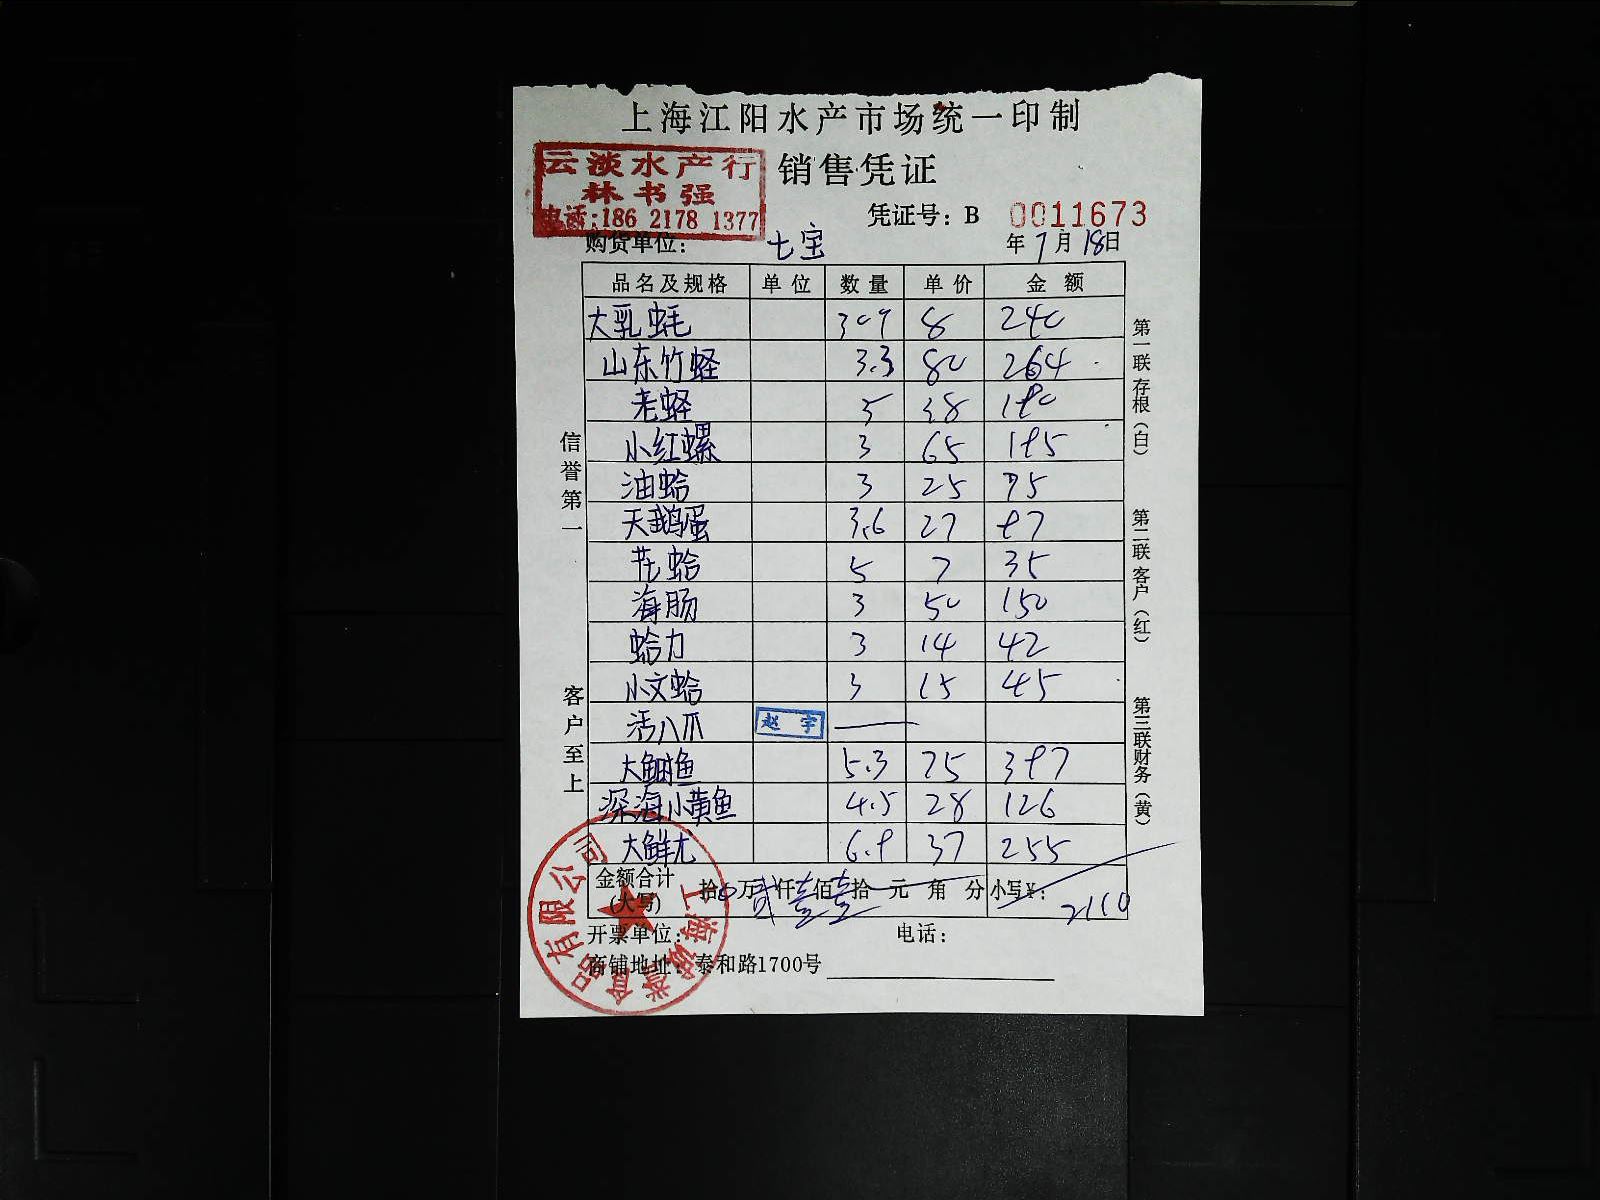 上海江阳水产市场统一印制
云淡水产行
林书强
电话:186 2178 1377
销售凭证
凭证号: B 0011673
购货单位: 七宝 年 7月 18日
品名及规格 单位 数量 单价 金额
大乳蚝 30个 8 240
山东竹蛏 3.3 80 264
老蛏 5 38 190
小红螺 3 65 195
油蛤 3 25 75
天鹅蛋 3.6 27 97
花蛤 5 7 35
海肠 3 50 150
蛤力 3 14 42
小文蛤 3 15 45
活八爪 赵宇 —
大鲳鱼 5.3 75 397
深海小黄鱼 4.5 28 126
大鲜尤 6.9 37 255
金额合计(大写) 拾0万贰仟壹佰壹拾 元 角 分 小写¥: 2110
开票单位: 电话:
商铺地址: 泰和路1700号
信誉第一
客户至上
第一联 存根(白)
第二联 客户(红)
第三联 财务(黄)
上海诚誉食品有限公司